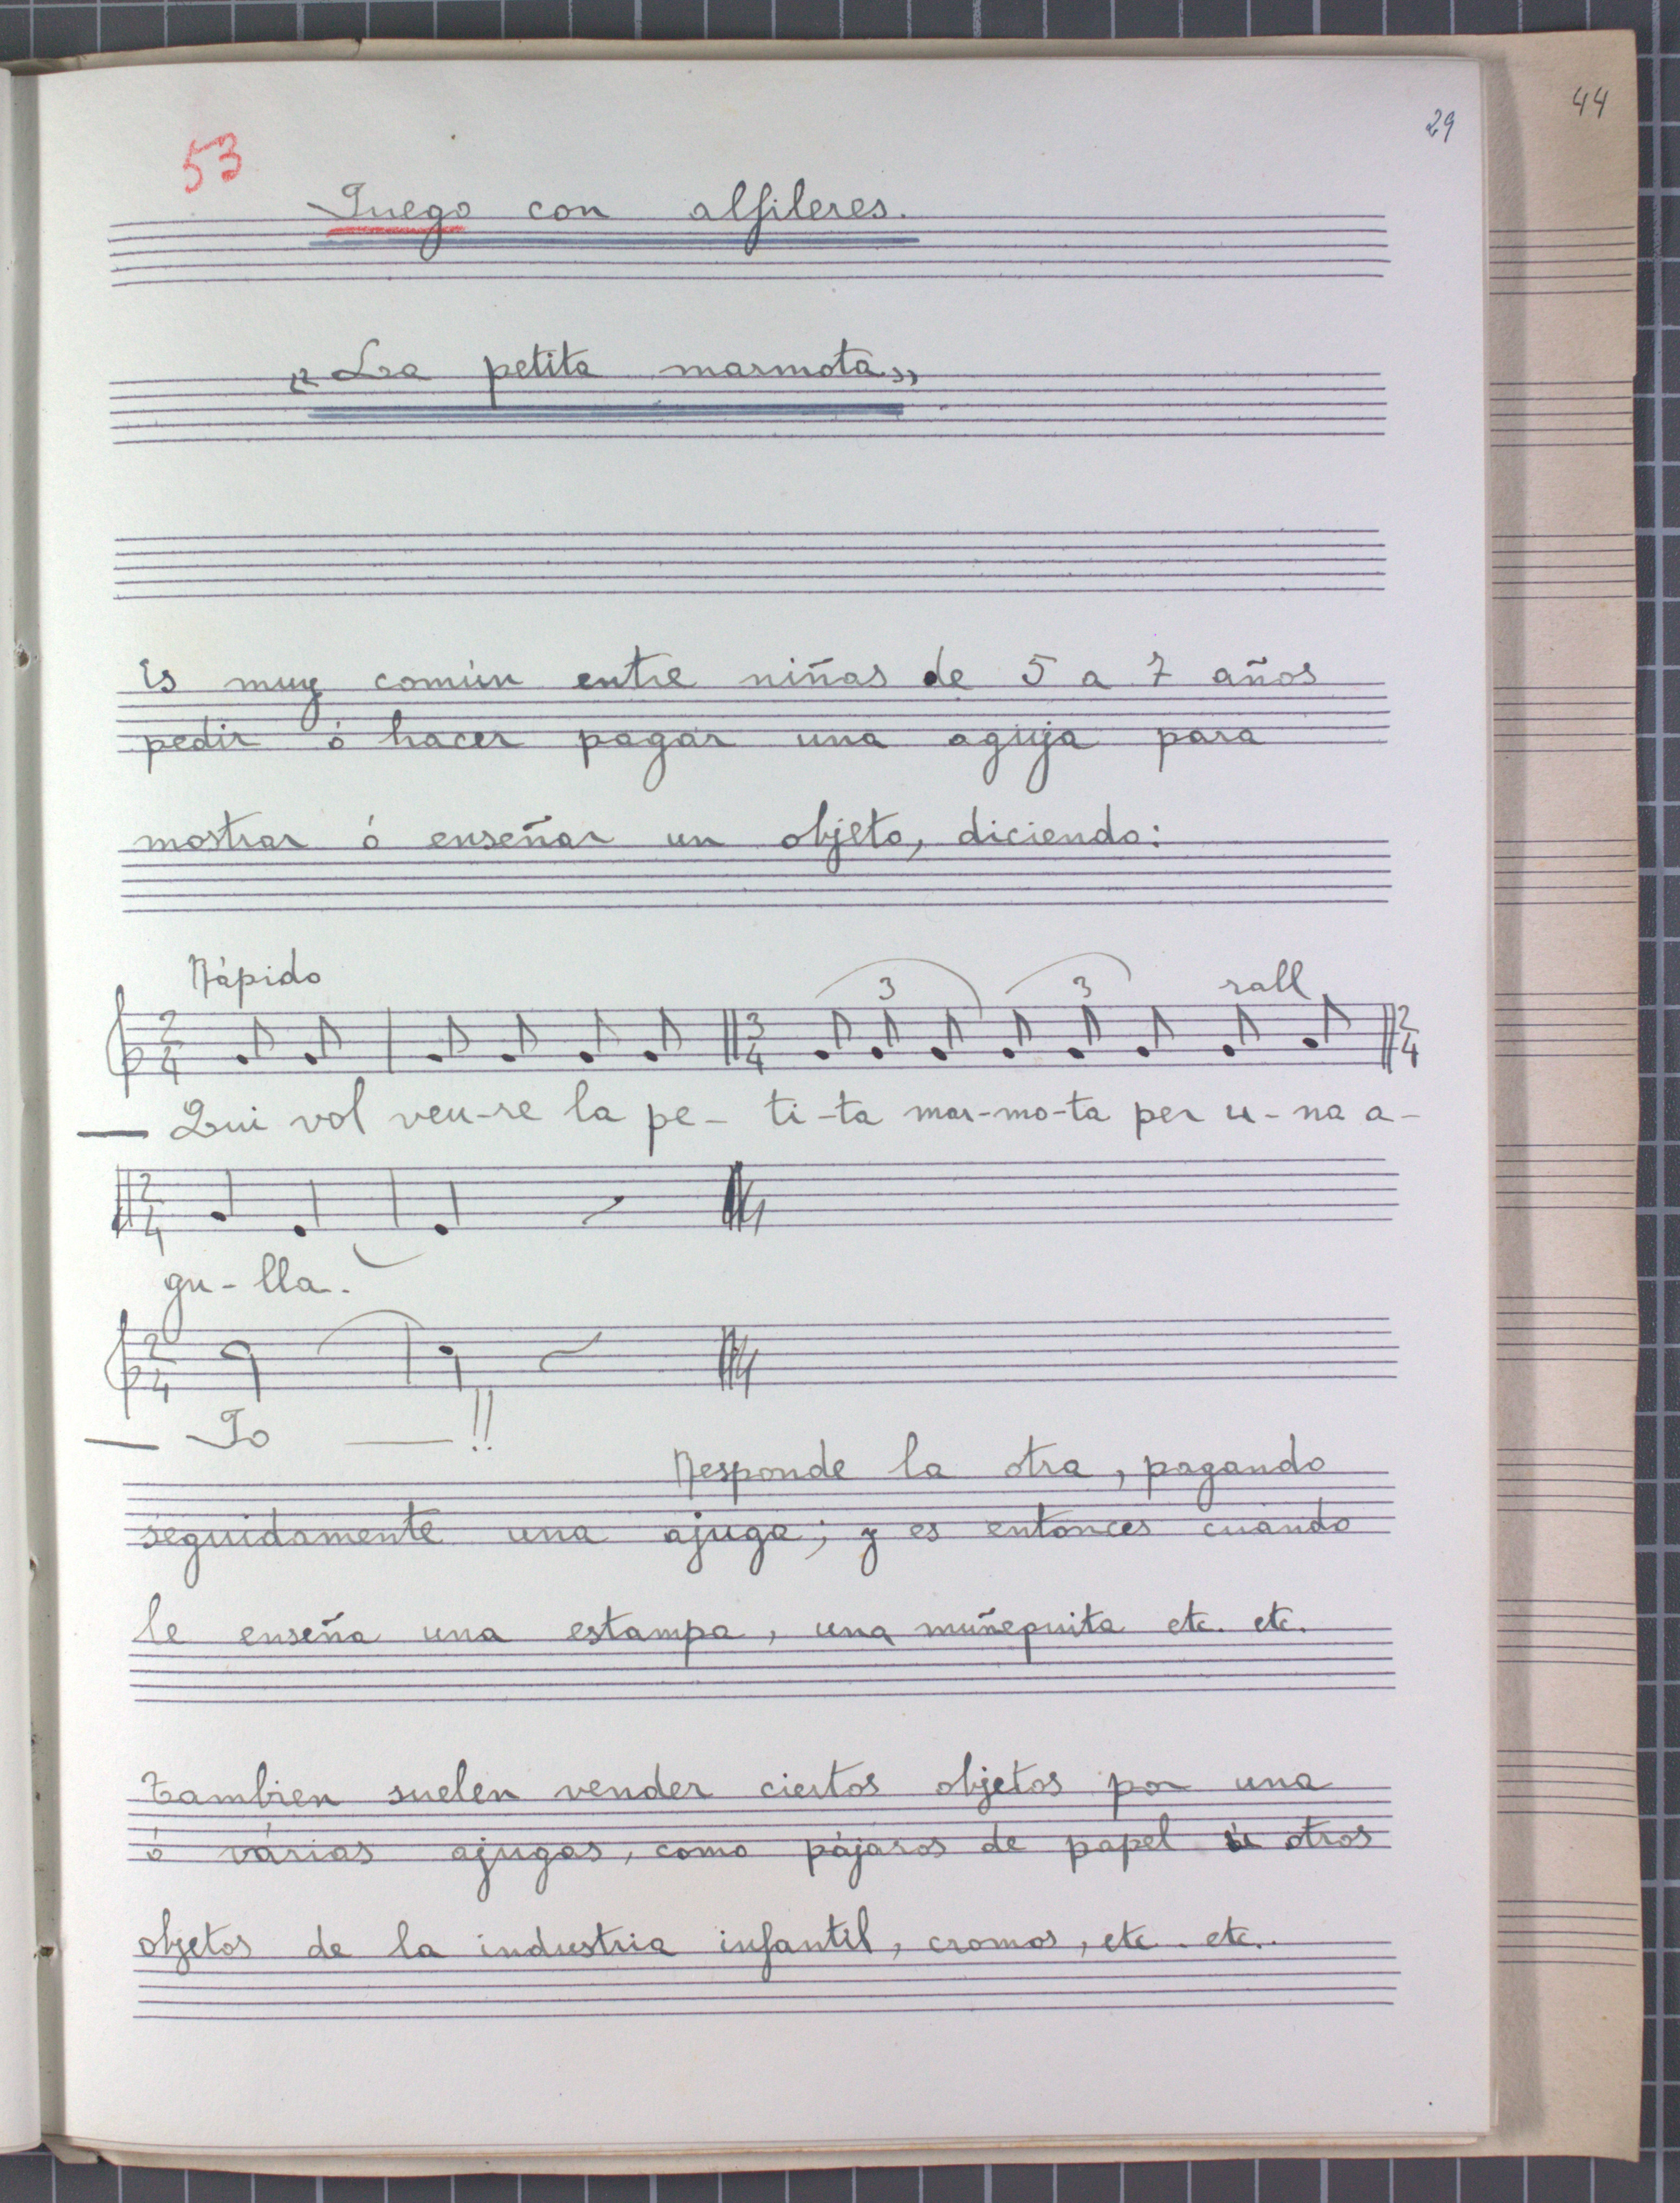 44
29
53
Juego con alfileres.
"La petita marmota"
Es muy común entre niñas de 5 a 7 años
pedir ó hacer pagar una aguja para
mostrar ó enseñar un objeto, diciendo:
Rápido 3 3 rall
2/4 3/4 2/4
— Qui vol veu-re la pe- ti-ta mar-mo-ta per u-na a-
2/4
gu-lla.
2/4
— Jo — !!
Responde la otra, pagando
seguidamente una ajuga; y es entonces cuando
le enseña una estampa, una muñequita etc. etc.
Tambien suelen vender ciertos objetos por una
ó várias ajugas, como pájaros de papel ú otros
objetos de la industria infantil, cromos, etc. etc.